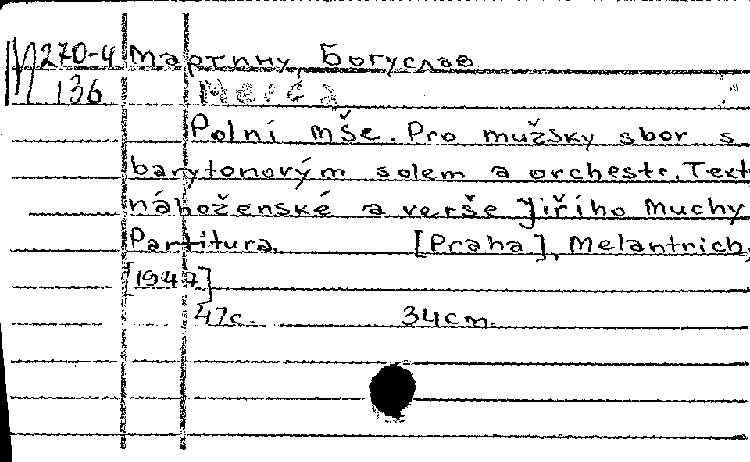 М 270-4 Мартину, Богуслав
136 Месса
Polní mše. Pro mužsky sbor s
barytonovým solem a orchestr. Text
náboženské a verše Jiřího Muchy
Partitura. [Praha], Melantrich,
[1947]
47с. 34cm.